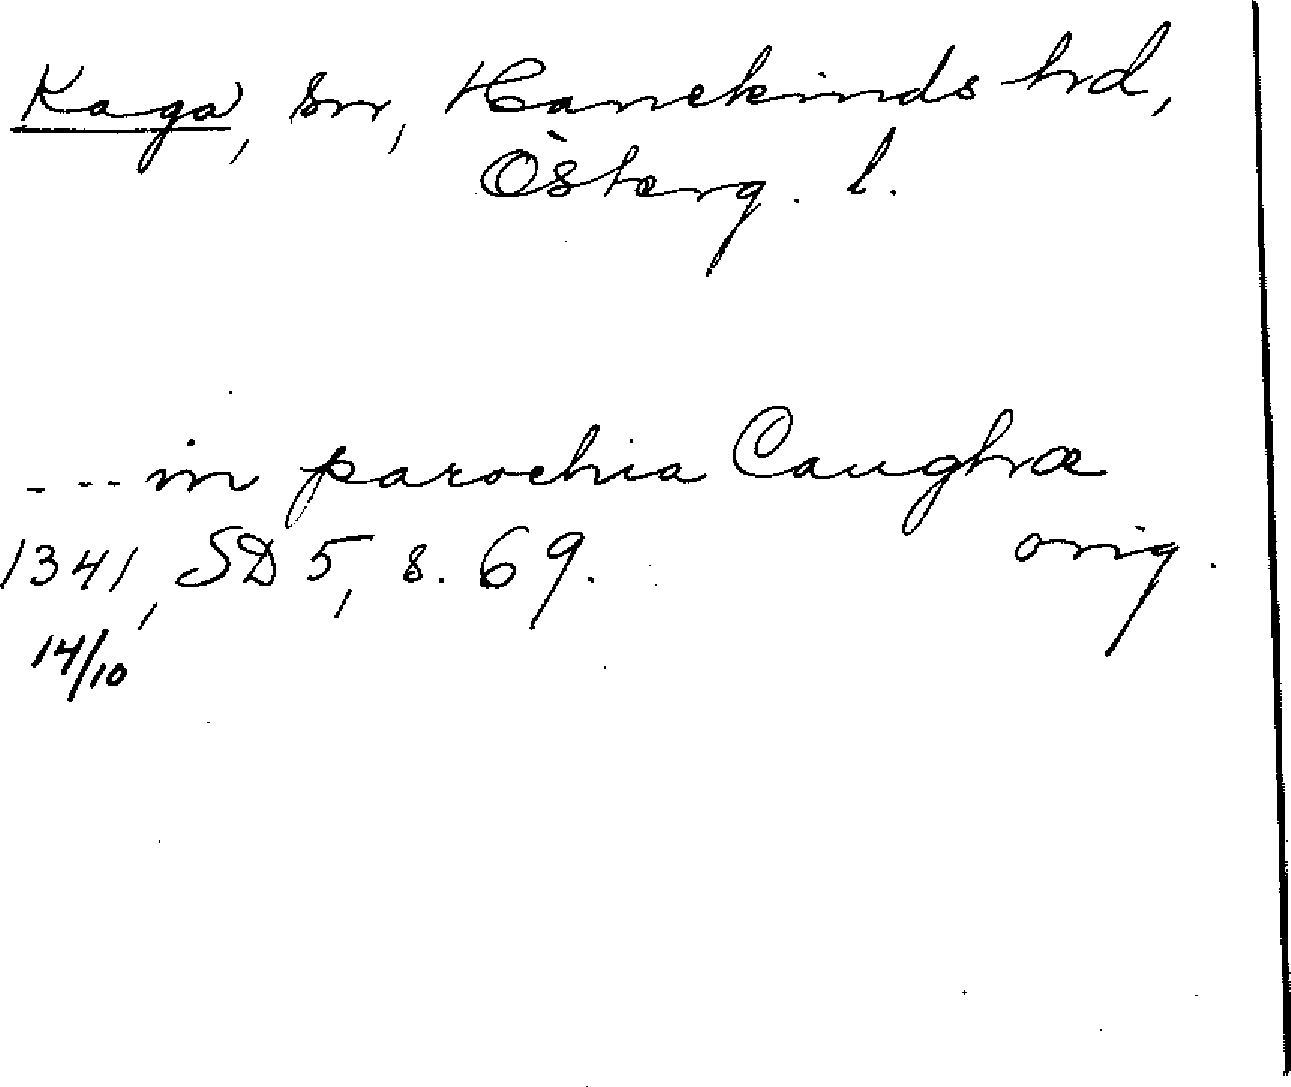 Kaga, sn, Hanekinds hd,
Österg. l.
--- in parochia Caughæ
1341, SD 5, s. 69. orig.
14/10